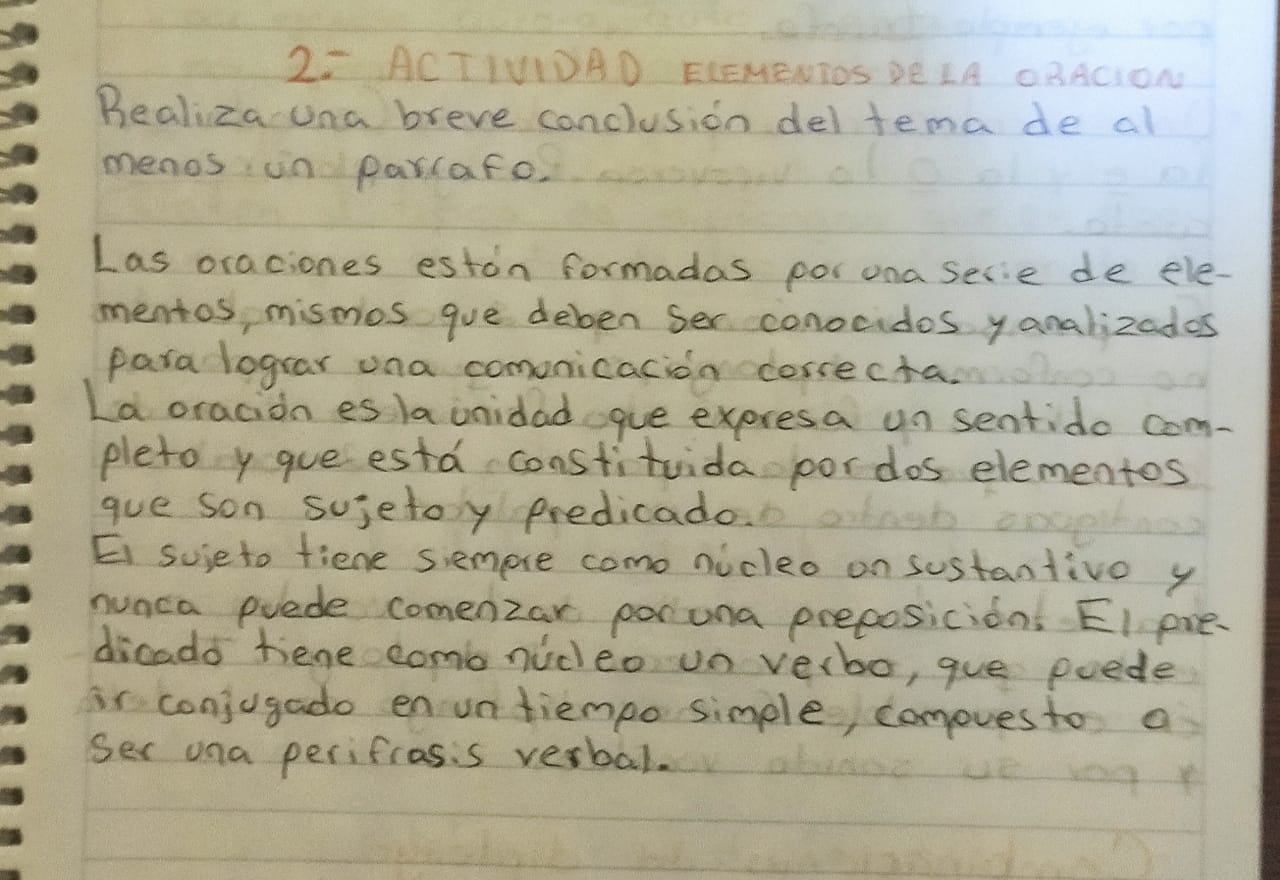 2.- ACTIVIDAD ELEMENTOS DE LA ORACION
Realiza una breve conclusión del tema de al
menos un parrafo.
Las oraciones están formadas por una serie de ele-
mentos, mismos que deben ser conocidos y analizados
para lograr una comunicación correcta.
La oración es la unidad que expresa un sentido com-
pleto y que está constituida por dos elementos
que son sujeto y predicado.
El sujeto tiene siempre como núcleo un sustantivo y
nunca puede comenzar por una preposición. El pre-
dicado tiene como núcleo un verbo, que puede
ir conjugado en un tiempo simple, compuesto o
ser una perifrasis verbal.